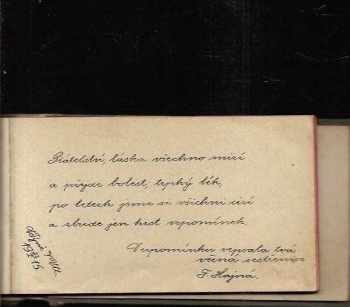 Přátelství, láska všechno mizí
a přijde bolest, lepký lék,
po letech jsme si všichni cizí
a zbude jen hrst vzpomínek.
Vzpomínku vepsala tvá
věrná sestřenice
F. Hajná.